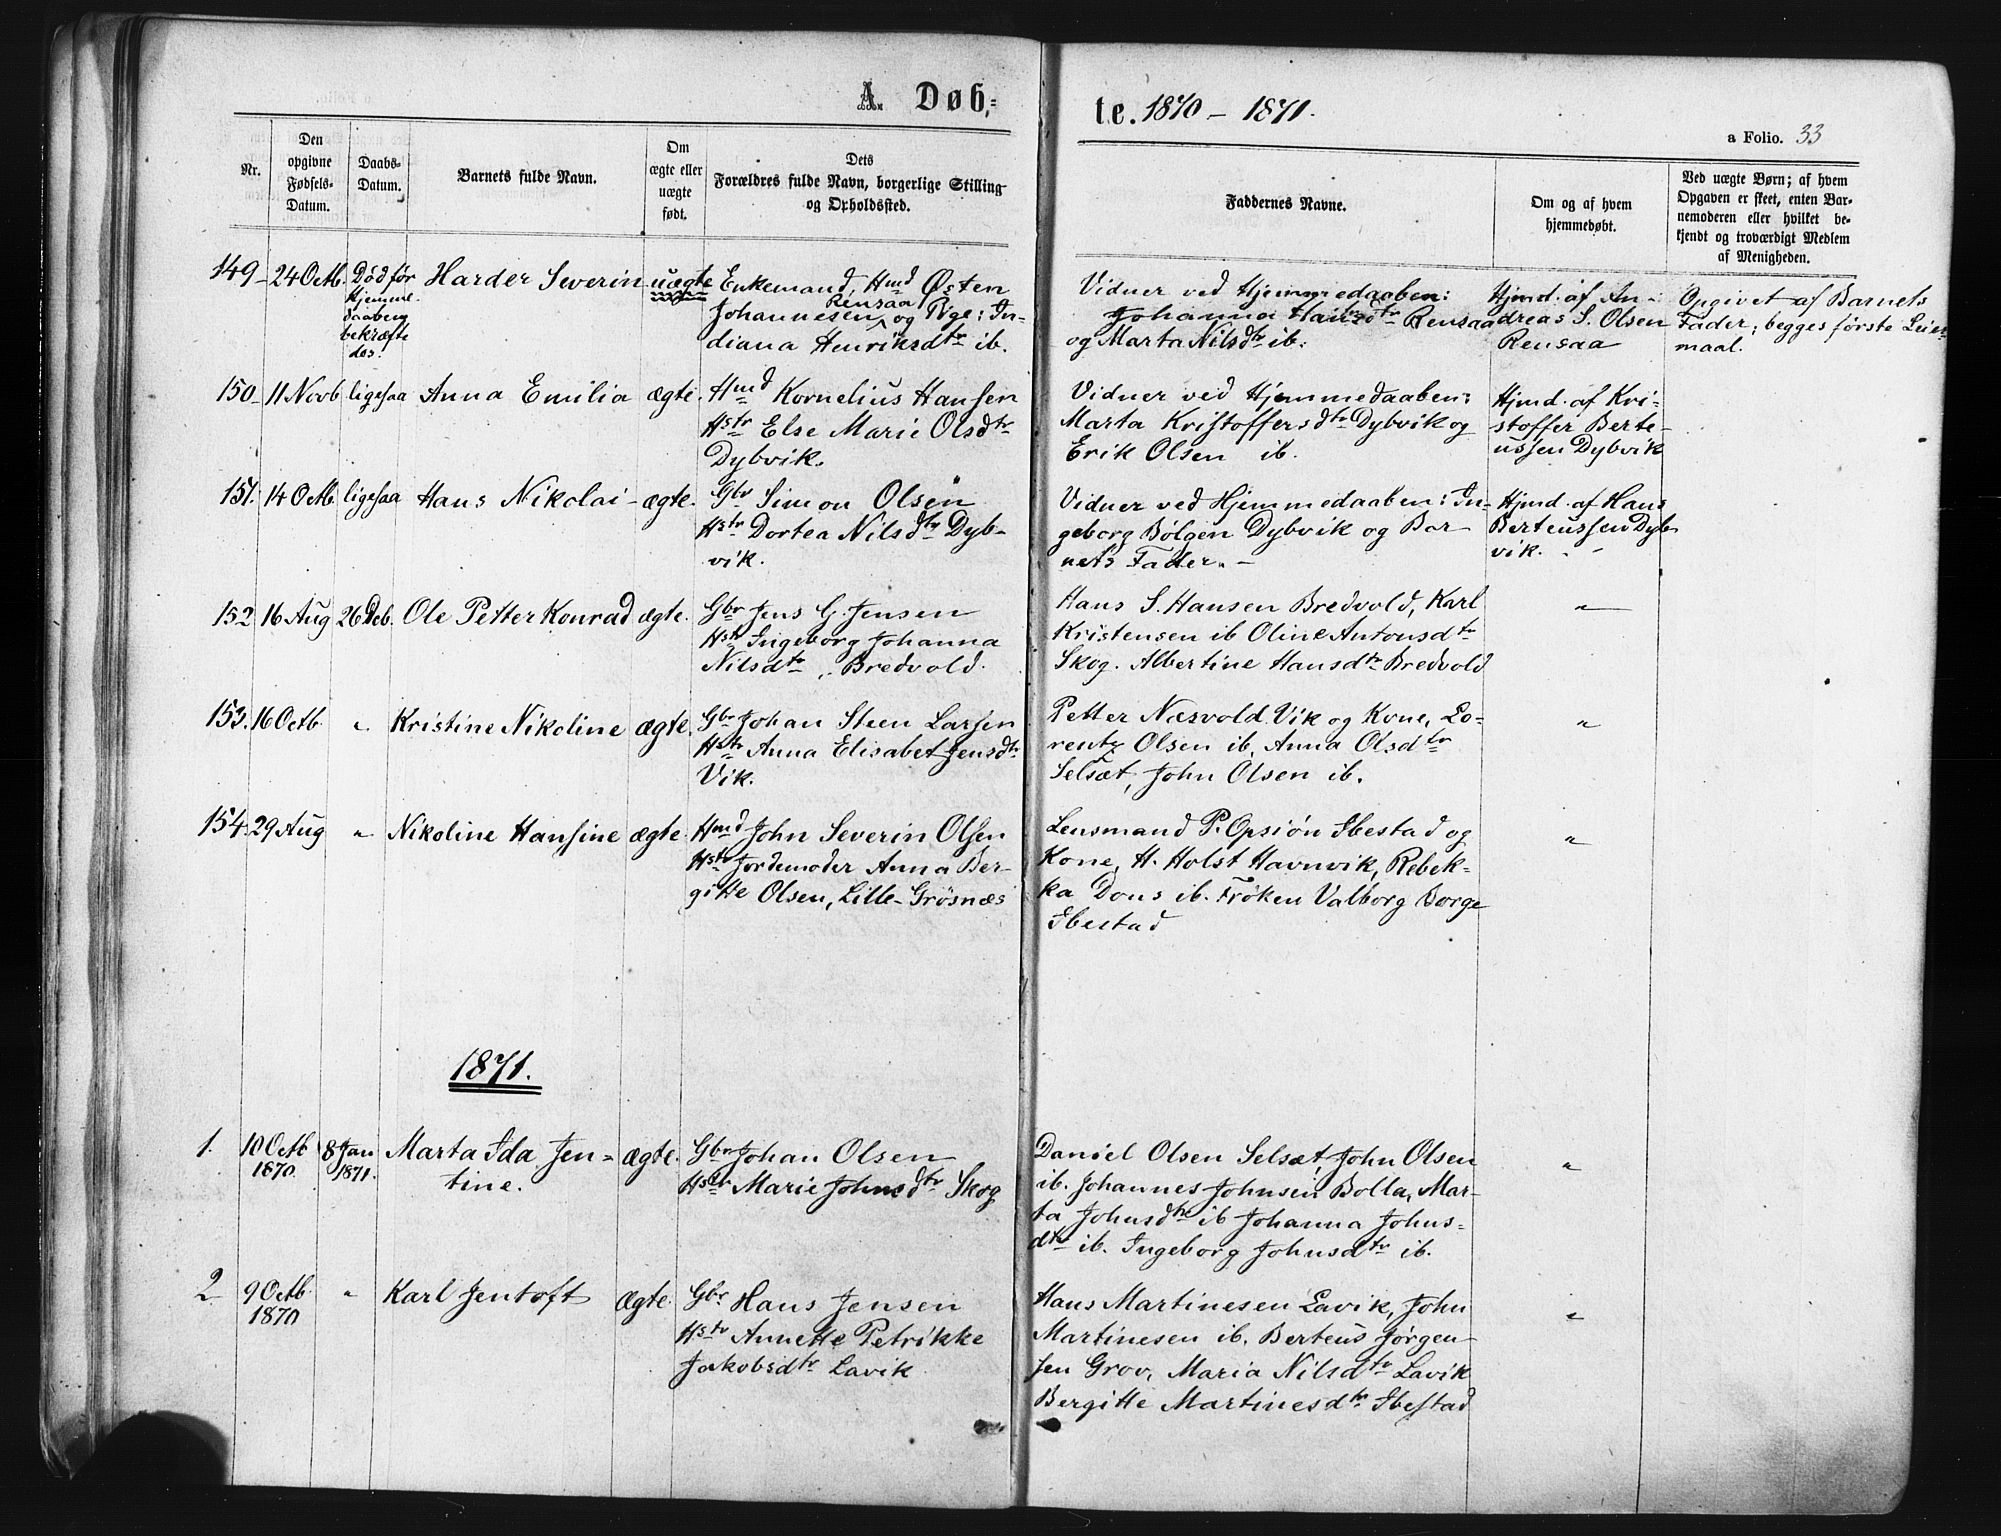 A. Døb-
te. 1870 – 1871.
a Folio. 33
Nr.
Den opgivne Fødsels-Datum.
Daabs-Datum.
Barnets fulde Navn.
Om ægte eller uægte født.
Dets Forældres fulde Navn, borgerlige Stilling og Opholdssted.
Faddernes Navne.
Om og af hvem hjemmedøbt.
Ved uægte Børn; af hvem Opgaven er skeet, enten Barnemoderen eller hvilket bekjendt og troværdigt Medlem af Menigheden.
149 – 24 Octb. Død før Hjemmedaaben bekræftedes. Harder Severin uægte
Enkemand, Hmd Østen
Johannesen Rensaa og Pige: In-
diana Henriksdtr ib.
Vidner ved Hjemmedaaben:
Johanna Hansdtr Rensaa
og Marta Nilsdtr ib.
Hjmd. af An-
dreas S. Olsen
Rensaa
Opgivet af Barnets
Fader; begges første Leier-
maal.
150 – 11 Novb ligesaa Anna Emilia ægte.
Hmd Kornelius Hansen
Hstr Else Marie Olsdtr
Dybvik.
Vidner ved Hjemmedaaben:
Marta Kristoffersdtr Dybvik og
Erik Olsen ib.
Hjmd. af Kri-
stoffer Berte-
ussen Dybvik
151. 14 Octb ligesaa Hans Nikolai – ægte.
Gbr Simon Olsen
Hstr Dortea Nilsdtr Dyb-
vik.
Vidner ved Hjemmedaaben: In-
geborg Bølgen Dybvik og Bar-
nets Fader. –
Hjmd. af Hans
Berteussen Dyb-
vik.
152 16 Aug 26 Deb. Ole Petter Konrad ægte.
Gbr Jens G. Jensen
Hstr Ingeborg Johanna
Nilsdtr Bredvold.
Hans S. Hansen Bredvold, Karl
Kristensen ib Oline Antonsdtr
Skog. Albertine Hansdtr Bredvold
"
153. 16 Octb " Kristine Nikoline ægte.
Gbr Johan Steen Larsen
Hstr Anna Elisabet Jensdtr
Vik.
Petter Næsvold Vik og Kone, Lo-
rentz Olsen ib. Anna Olsdtr
Selsæt, John Olsen ib.
"
154. 29 Aug " Nikoline Hansine ægte.
Hmd John Severin Olsen
Hstr Jordemoder Anna Ber-
gitte Olsen, Lille-Grøsnæs
Lensmand P. Opsiøn Ibestad og
Kone, H. Holst Havnvik, Rebek-
ka Dons ib. Frøken Valborg Borge
Ibestad
"
1871.
1. 10 Octb 1870. 8 Jan 1871. Marta Ida Jen-
tine. ægte.
Gbr Johan Olsen
Hstr Marie Johnsdtr Skog
Daniel Olsen Selsæt, John Olsen
ib. Johannes Johnsen Bolla, Mar-
ta Johnsdtr ib Johanna Johns-
dtr ib. Ingeborg Johnsdtr ib.
"
2 9 Octb. 1870 " Karl Jentoft ægte.
Gbr Hans Jensen
Hstr Annette Petrikke
Jakobsdtr Lavik
Hans Martinesen Lavik, John
Martinesen ib. Berteus Jørgen-
sen Grov, Maria Nilsdtr Lavik
Bergitte Martinesdtr Ibestad
"